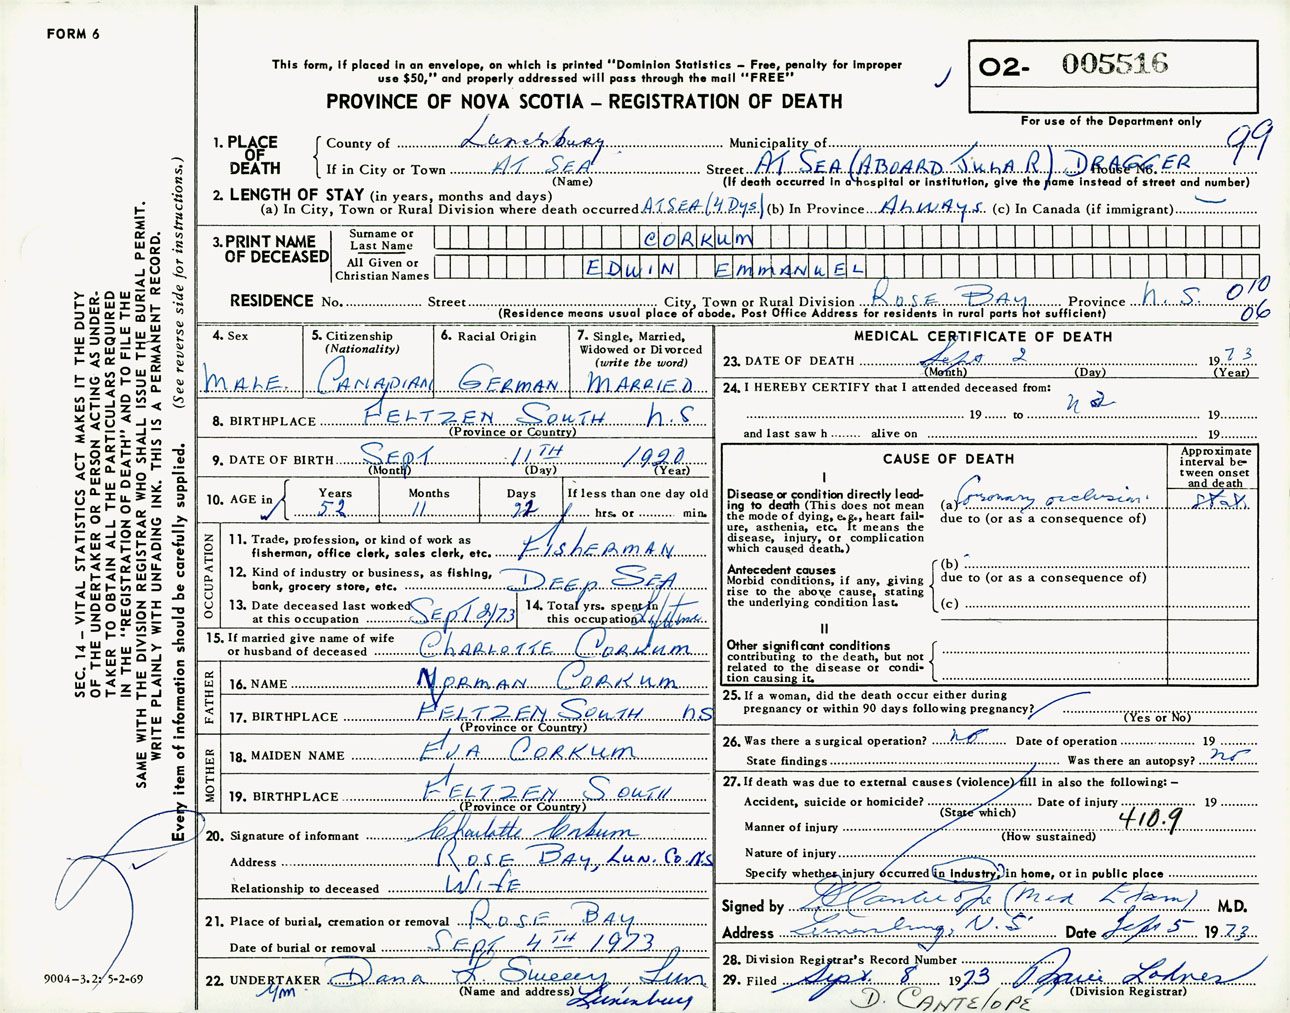 FORM 6
This form, if placed in an envelope, on which is printed "Dominion Statistics – Free, penalty for improper
use $50," and properly addressed will pass through the mail "FREE"
PROVINCE OF NOVA SCOTIA – REGISTRATION OF DEATH
O2- 005516
For use of the Department only
99
1. PLACE OF DEATH
County of Lunenburg Municipality of
If in City or Town AT SEA Street AT SEA (ABOARD JULIA R) DRAGGER House No.
(Name) (If death occurred in a hospital or institution, give the name instead of street and number)
2. LENGTH OF STAY (in years, months and days)
(a) In City, Town or Rural Division where death occurred AT SEA (4 Dys) (b) In Province ALWAYS (c) In Canada (if immigrant)
3. PRINT NAME OF DECEASED
Surname or Last Name CORKUM
All Given or Christian Names EDWIN EMMANUEL
RESIDENCE No. Street City, Town or Rural Division ROSE BAY Province N.S. 010
(Residence means usual place of abode. Post Office Address for residents in rural parts not sufficient) 06
4. Sex MALE
5. Citizenship (Nationality) CANADIAN
6. Racial Origin GERMAN
7. Single, Married, Widowed or Divorced (write the word) MARRIED
8. BIRTHPLACE FELTZEN SOUTH N.S
(Province or Country)
9. DATE OF BIRTH SEPT 11TH 1920
(Month) (Day) (Year)
10. AGE in Years Months Days If less than one day old
52 11 22 hrs. or min.
OCCUPATION
11. Trade, profession, or kind of work as
fisherman, office clerk, sales clerk, etc. FISHERMAN
12. Kind of industry or business, as fishing,
bank, grocery store, etc. DEEP SEA
13. Date deceased last worked
at this occupation SEPT 2/73
14. Total yrs. spent in
this occupation Lifetime
15. If married give name of wife
or husband of deceased CHARLOTTE CORKUM
FATHER
16. NAME NORMAN CORKUM
17. BIRTHPLACE FELTZEN SOUTH NS
(Province or Country)
MOTHER
18. MAIDEN NAME EVA CORKUM
19. BIRTHPLACE FELTZEN SOUTH
(Province or Country)
20. Signature of informant Charlotte Corkum
Address ROSE BAY, LUN. CO. N.S
Relationship to deceased WIFE
21. Place of burial, cremation or removal ROSE BAY
Date of burial or removal SEPT 4TH 1973
22. UNDERTAKER Dana L. Sweeny Lun
(Name and address) Lunenburg
MEDICAL CERTIFICATE OF DEATH
23. DATE OF DEATH Sept 2 1973
(Month) (Day) (Year)
24. I HEREBY CERTIFY that I attended deceased from:
19 to 19
and last saw h alive on 19
CAUSE OF DEATH
Approximate interval between onset and death
I
Disease or condition directly lead-
ing to death (This does not mean
the mode of dying, e.g., heart fail-
ure, asthenia, etc. It means the
disease, injury, or complication
which caused death.)
(a) Coronary occlusion
due to (or as a consequence of)
Antecedent causes
Morbid conditions, if any, giving
rise to the above cause, stating
the underlying condition last.
(b)
due to (or as a consequence of)
(c)
II
Other significant conditions
contributing to the death, but not
related to the disease or condi-
tion causing it.
25. If a woman, did the death occur either during
pregnancy or within 90 days following pregnancy?
(Yes or No)
26. Was there a surgical operation? no Date of operation 19
State findings Was there an autopsy? no
27. If death was due to external causes (violence) fill in also the following: –
Accident, suicide or homicide? Date of injury 19
(State which)
Manner of injury 410.9
(How sustained)
Nature of injury
Specify whether injury occurred in industry, in home, or in public place
Signed by D Cantelope (Med Exam) M.D.
Address Lunenburg, N.S Date Sept 5 1973
28. Division Registrar's Record Number
29. Filed Sept. 8 1973
(Division Registrar)
D. CANTELOPE
SEC. 14 – VITAL STATISTICS ACT MAKES IT THE DUTY
OF THE UNDERTAKER OR PERSON ACTING AS UNDER-
TAKER TO OBTAIN ALL THE PARTICULARS REQUIRED
IN THE "REGISTRATION OF DEATH" AND TO FILE THE
SAME WITH THE DIVISION REGISTRAR WHO SHALL ISSUE THE BURIAL PERMIT.
WRITE PLAINLY WITH UNFADING INK. THIS IS A PERMANENT RECORD.
Every item of information should be carefully supplied. (See reverse side for instructions.)
9004-3.2; 5-2-69